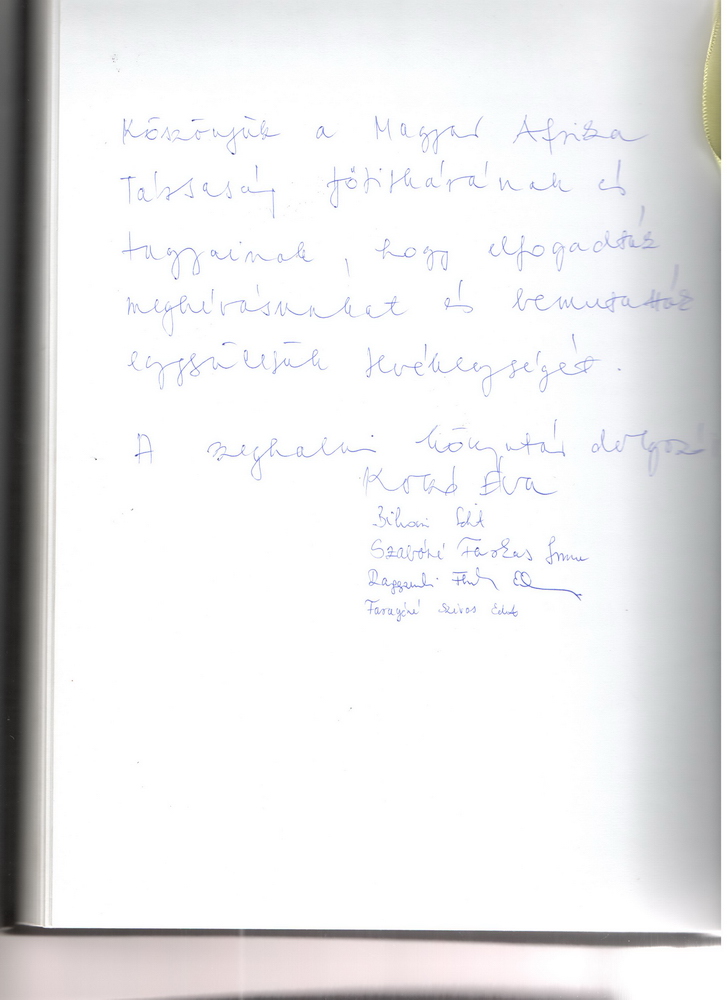 Köszönjük a Magyar Afrika
Társaság főtitkárának és
tagjainak, hogy elfogadták
meghívásunkat és bemutatták
egyesületük tevékenységét.
A szeghalmi könyvtár dolgozó
Kovács Éva
Bihari Edit
Szabóné Farkas Imma
Faragóné Szívós Edit